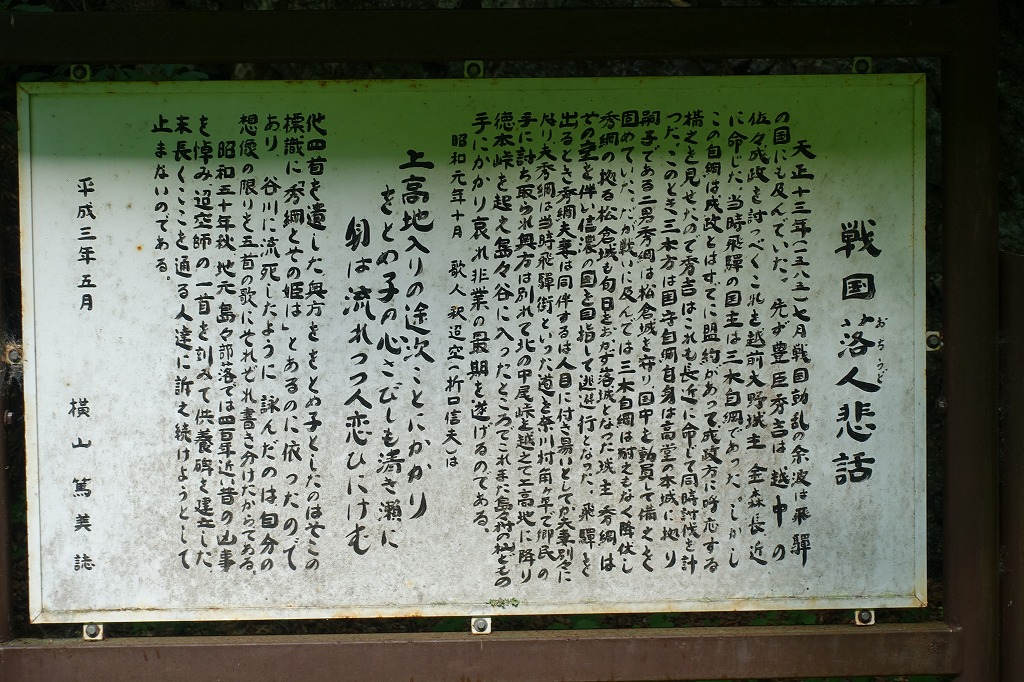 戦国落人悲話
おちうど
天正十三年(一五八五)七月戦国動乱の余波は飛騨
の国にも及んでいた。先ず豊臣秀吉は越中の
佐々成政を討つべくこれを越前大野城主金森長近
に命じた、当時飛騨の国主は三木自綱であった。しかし
この自綱は成政とはすでに盟約があって成政方に呼応する
構えを見せたので秀吉はこれも長近に命じて同時討伐を計
った、このとき三木方は国守自綱自身は高堂の本城に拠り
嗣子である二男秀綱は松倉城を守り国中を動員して備えを
固めていた、だが戦いに及んでは三木自綱は耐えもなく降伏し
秀綱の拠る松倉城も旬日をおかず落城となった城主秀綱は
その室を伴い信濃の国を目指して逃避行となった、飛騨を
出るとき秀綱夫妻は同伴するは人目に付き易いとしてか夫妻別々に
なり夫秀綱は当時飛騨街といった道を奈川村角ヶ平で郷民の
手に討ち取られ奥方は別れて北の中尾峠を越えて上高地に降り
徳本峠を越え島々谷に入ったところでこれまた島々村の杣どもの
手にかかり哀れ非業の最期を遂げるのである。
昭和元年十月 歌人 釈迢空(折口信夫)は
上高地入りの途次ことにかかり
をとめ子の心さびしも清き瀬に
身は流れつつ人恋ひにけむ
他四首を遺した奥方ををとめ子としたのはそこの
標識に秀綱とその姫は」とあるのに依ったので
あり、谷川に流死したように詠んだのは自分の
想像の限りを五首の歌にそれぞれ書き分けたからである。
昭和五十年秋、地元島々部落では四百年近い昔の山事
を悼み迢空師の一首を刻みて供養碑を建立した、
末長くここを通る人達に訴え続けようとして
止まないのである。
平成三年五月
横山篤美誌